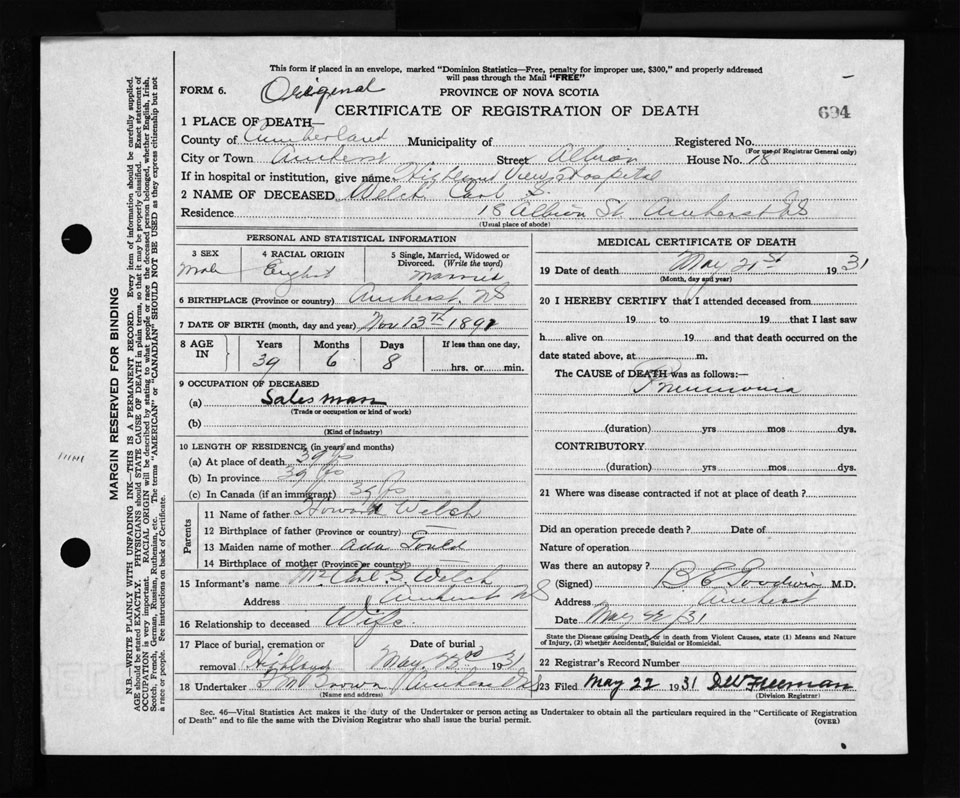 This form if placed in an envelope, marked "Dominion Statistics—Free, penalty for improper use, $300," and properly addressed
will pass through the Mail "FREE"
FORM 6. Original PROVINCE OF NOVA SCOTIA
CERTIFICATE OF REGISTRATION OF DEATH 694
1 PLACE OF DEATH—
County of Cumberland Municipality of Registered No.
(For use of Registrar General only)
City or Town Amherst Street Albion House No. 18
If in hospital or institution, give name Highland View Hospital
2 NAME OF DECEASED Welch Carl S.
Residence 18 Albion St. Amherst NS
(Usual place of abode)
PERSONAL AND STATISTICAL INFORMATION
3 SEX 4 RACIAL ORIGIN 5 Single, Married, Widowed or
Divorced. (Write the word)
Male English Married
6 BIRTHPLACE (Province or country) Amherst NS
7 DATE OF BIRTH (month, day and year) Nov 13th 1891
8 AGE IN Years Months Days If less than one day,
39 6 8 hrs. or min.
9 OCCUPATION OF DECEASED
(a) Salesman
(Trade or occupation or kind of work)
(b)
(Kind of industry)
10 LENGTH OF RESIDENCE (in years and months)
(a) At place of death 39 yrs
(b) In province 39 yrs
(c) In Canada (if an immigrant) 39 yrs
Parents
11 Name of father Howard Welch
12 Birthplace of father (Province or country) —
13 Maiden name of mother Ada Gould
14 Birthplace of mother (Province or country) —
15 Informant's name Mrs Carl S. Welch
Address Amherst NS
16 Relationship to deceased Wife.
17 Place of burial, cremation or Date of burial
removal Highland May 23rd 1931
18 Undertaker Brown Amherst NS
(Name and address)
MEDICAL CERTIFICATE OF DEATH
19 Date of death May 21st 1931
(Month, day and year)
20 I HEREBY CERTIFY that I attended deceased from
19 to 19 that I last saw
h alive on 19 and that death occurred on the
date stated above, at m.
The CAUSE of DEATH was as follows:—
Pneumonia
(duration) yrs mos dys.
CONTRIBUTORY
(duration) yrs mos dys.
21 Where was disease contracted if not at place of death?
Did an operation precede death? Date of
Nature of operation
Was there an autopsy?
(Signed) B E Goodwin M.D.
Address Amherst
Date May 22/31
State the Disease causing Death, or in death from Violent Causes, state (1) Means and Nature
of Injury, (2) whether Accidental, Suicidal or Homicidal.
22 Registrar's Record Number
23 Filed May 22 1931 Freeman
(Division Registrar)
Sec. 46—Vital Statistics Act makes it the duty of the Undertaker or person acting as Undertaker to obtain all the particulars required in the "Certificate of Registration
of Death" and to file the same with the Division Registrar who shall issue the burial permit. (OVER)
MARGIN RESERVED FOR BINDING
N.B.—WRITE PLAINLY WITH UNFADING INK—THIS IS A PERMANENT RECORD. Every item of information should be carefully supplied.
AGE should be stated EXACTLY. PHYSICIANS should STATE CAUSE OF DEATH in plain terms, so that it may be properly classified. Exact statement of
OCCUPATION is very important. RACIAL ORIGIN will be described by stating to what people or race the deceased person belonged, whether English, Irish,
Scotch, French, German, Russian, Ruthenian, etc. The terms "AMERICAN" or "CANADIAN" SHOULD NOT BE USED as they express citizenship but not
a race or people. See instructions on back of Certificate.